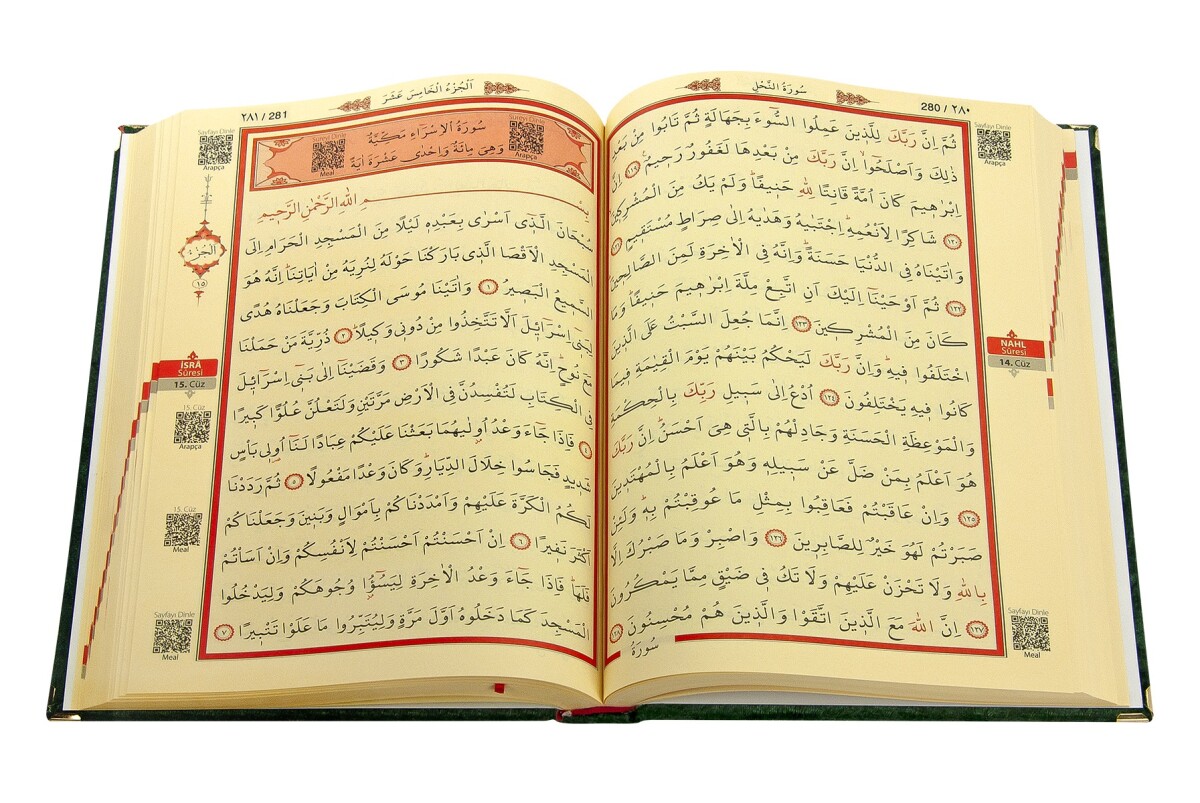 سُورَةُ النَّحْلِ
280 / ٢٨٠
Sayfayı Dinle
Arapça
ثُمَّ اِنَّ رَبَّكَ لِلَّذٖينَ عَمِلُوا السُّٓوءَ بِجَهَالَةٍ ثُمَّ تَابُوا مِنْ بَعْدِ
ذٰلِكَ وَاَصْلَحُٓوا اِنَّ رَبَّكَ مِنْ بَعْدِهَا لَغَفُورٌ رَحٖيمٌ ﴿١١٩﴾ اِنَّ
اِبْرٰهٖيمَ كَانَ اُمَّةً قَانِتًا لِلّٰهِ حَنٖيفًاۜ وَلَمْ يَكُ مِنَ الْمُشْرِكٖينَ
﴿١٢٠﴾ شَاكِرًا لِاَنْعُمِهٖۜ اِجْتَبٰيهُ وَهَدٰيهُ اِلٰى صِرَاطٍ مُسْتَقٖيمٍ ﴿١٢١﴾
وَاٰتَيْنَاهُ فِي الدُّنْيَا حَسَنَةًۜ وَاِنَّهُ فِي الْاٰخِرَةِ لَمِنَ الصَّالِحٖينَ
﴿١٢٢﴾ ثُمَّ اَوْحَيْنَٓا اِلَيْكَ اَنِ اتَّبِعْ مِلَّةَ اِبْرٰهٖيمَ حَنٖيفًاۜ وَمَا
كَانَ مِنَ الْمُشْرِكٖينَ ﴿١٢٣﴾ اِنَّمَا جُعِلَ السَّبْتُ عَلَى الَّذٖينَ
اخْتَلَفُوا فٖيهِۜ وَاِنَّ رَبَّكَ لَيَحْكُمُ بَيْنَهُمْ يَوْمَ الْقِيٰمَةِ فٖيمَا
كَانُوا فٖيهِ يَخْتَلِفُونَ ﴿١٢٤﴾ اُدْعُ اِلٰى سَبٖيلِ رَبِّكَ بِالْحِكْمَةِ
وَالْمَوْعِظَةِ الْحَسَنَةِ وَجَادِلْهُمْ بِالَّتٖي هِيَ اَحْسَنُۜ اِنَّ رَبَّكَ
هُوَ اَعْلَمُ بِمَنْ ضَلَّ عَنْ سَبٖيلِهٖ وَهُوَ اَعْلَمُ بِالْمُهْتَدٖينَ
﴿١٢٥﴾ وَاِنْ عَاقَبْتُمْ فَعَاقِبُوا بِمِثْلِ مَا عُوقِبْتُمْ بِهٖۜ وَلَئِنْ
صَبَرْتُمْ لَهُوَ خَيْرٌ لِلصَّابِرٖينَ ﴿١٢٦﴾ وَاصْبِرْ وَمَا صَبْرُكَ اِلَّا
بِاللّٰهِ وَلَا تَحْزَنْ عَلَيْهِمْ وَلَا تَكُ فٖي ضَيْقٍ مِمَّا يَمْكُرُونَ
﴿١٢٧﴾ اِنَّ اللّٰهَ مَعَ الَّذٖينَ اتَّقَوْا وَالَّذٖينَ هُمْ مُحْسِنُونَ ﴿١٢٨﴾
سُورَةُ
NAHL
Sûresi
14. Cüz
Sayfayı Dinle
Meal
اَلْجُزْءُ الْخَامِسَ عَشَرَ
٢٨١ / 281
Sûreyi Dinle
Arapça
سُورَةُ الْاِسْرَاءِ مَكِّيَّةٌ
وَهِيَ مِائَةٌ وَاِحْدٰى عَشْرَةَ اٰيَةً
Sûreyi Dinle
Meal
بِسْمِ اللّٰهِ الرَّحْمٰنِ الرَّحٖيمِ
سُبْحَانَ الَّذٖٓي اَسْرٰى بِعَبْدِهٖ لَيْلًا مِنَ الْمَسْجِدِ الْحَرَامِ اِلَى
الْمَسْجِدِ الْاَقْصَا الَّذٖي بَارَكْنَا حَوْلَهُ لِنُرِيَهُ مِنْ اٰيَاتِنَاۜ اِنَّهُ هُوَ
السَّمٖيعُ الْبَصٖيرُ ﴿١﴾ وَاٰتَيْنَا مُوسَى الْكِتَابَ وَجَعَلْنَاهُ هُدًى
لِبَنٖٓي اِسْرَٓائٖلَ اَلَّا تَتَّخِذُوا مِنْ دُونٖي وَكٖيلًاۜ ﴿٢﴾ ذُرِّيَّةَ مَنْ حَمَلْنَا
مَعَ نُوحٍۜ اِنَّهُ كَانَ عَبْدًا شَكُورًا ﴿٣﴾ وَقَضَيْنَٓا اِلٰى بَنٖٓي اِسْرَٓائٖلَ
فِي الْكِتَابِ لَتُفْسِدُنَّ فِي الْاَرْضِ مَرَّتَيْنِ وَلَتَعْلُنَّ عُلُوًّا كَبٖيرًا
﴿٤﴾ فَاِذَا جَٓاءَ وَعْدُ اُو۫لٰيهُمَا بَعَثْنَا عَلَيْكُمْ عِبَادًا لَنَٓا اُو۬لٖي بَأْسٍ
شَدٖيدٍ فَجَاسُوا خِلَالَ الدِّيَارِۜ وَكَانَ وَعْدًا مَفْعُولًا ﴿٥﴾ ثُمَّ رَدَدْنَا
لَكُمُ الْكَرَّةَ عَلَيْهِمْ وَاَمْدَدْنَاكُمْ بِاَمْوَالٍ وَبَنٖينَ وَجَعَلْنَاكُمْ
اَكْثَرَ نَفٖيرًا ﴿٦﴾ اِنْ اَحْسَنْتُمْ اَحْسَنْتُمْ لِاَنْفُسِكُمْ وَاِنْ اَسَأْتُمْ
فَلَهَاۜ فَاِذَا جَٓاءَ وَعْدُ الْاٰخِرَةِ لِيَسُٓؤُ۫ا وُجُوهَكُمْ وَلِيَدْخُلُوا
الْمَسْجِدَ كَمَا دَخَلُوهُ اَوَّلَ مَرَّةٍ وَلِيُتَبِّرُوا مَا عَلَوْا تَتْبٖيرًا ﴿٧﴾
Sayfayı Dinle
Arapça
اَلْجُزْءُ
١٥
İSRÂ
Sûresi
15. Cüz
15. Cüz
Arapça
15. Cüz
Meal
Sayfayı Dinle
Meal